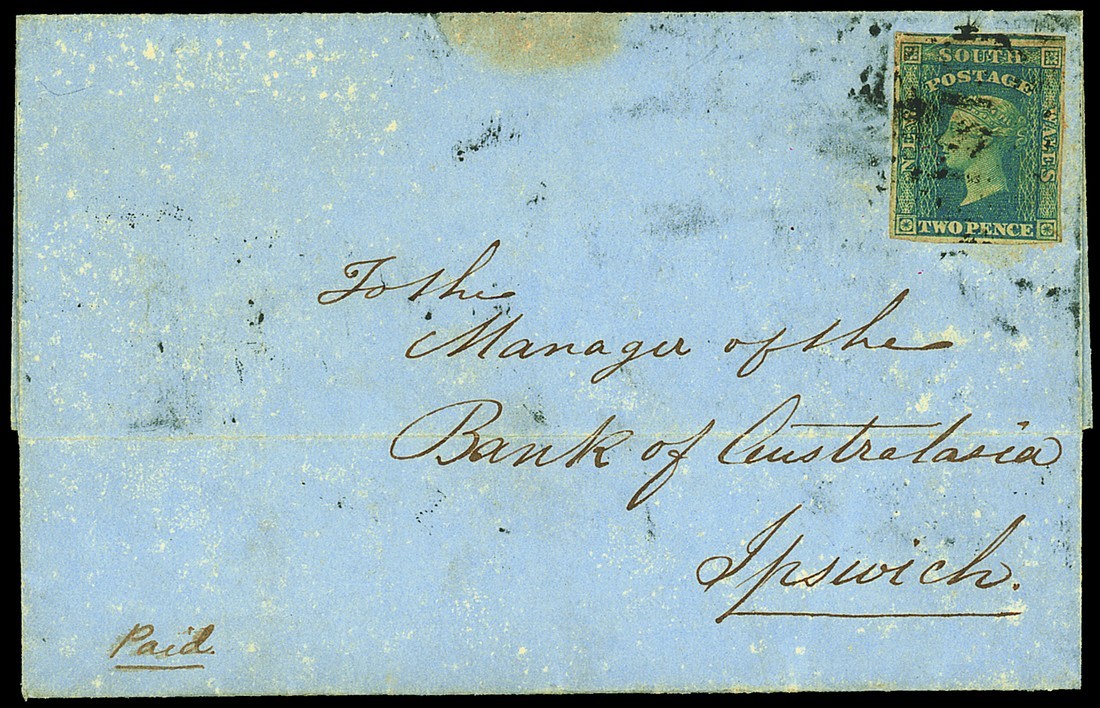 SOUTH
POSTAGE
NEW
WALES
TWO PENCE
To the
Manager of the
Bank of Australasia
Ipswich.
Paid